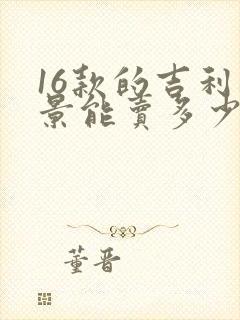 16款的吉利
景能卖多少
董晋